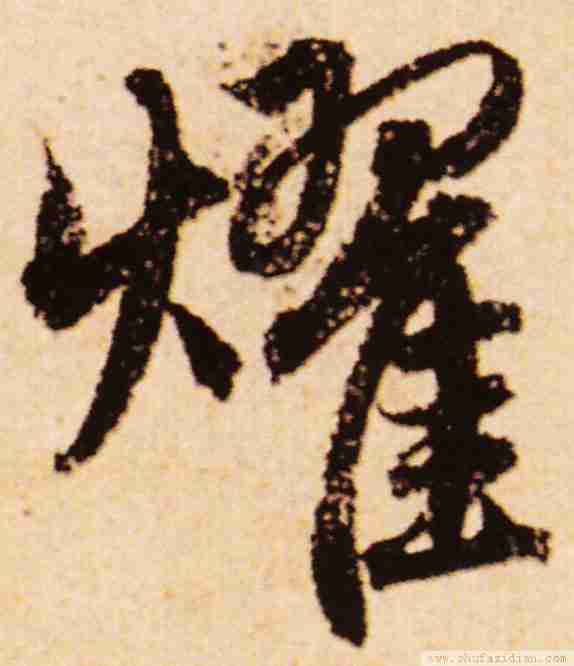 燿
www.shufazidian.com